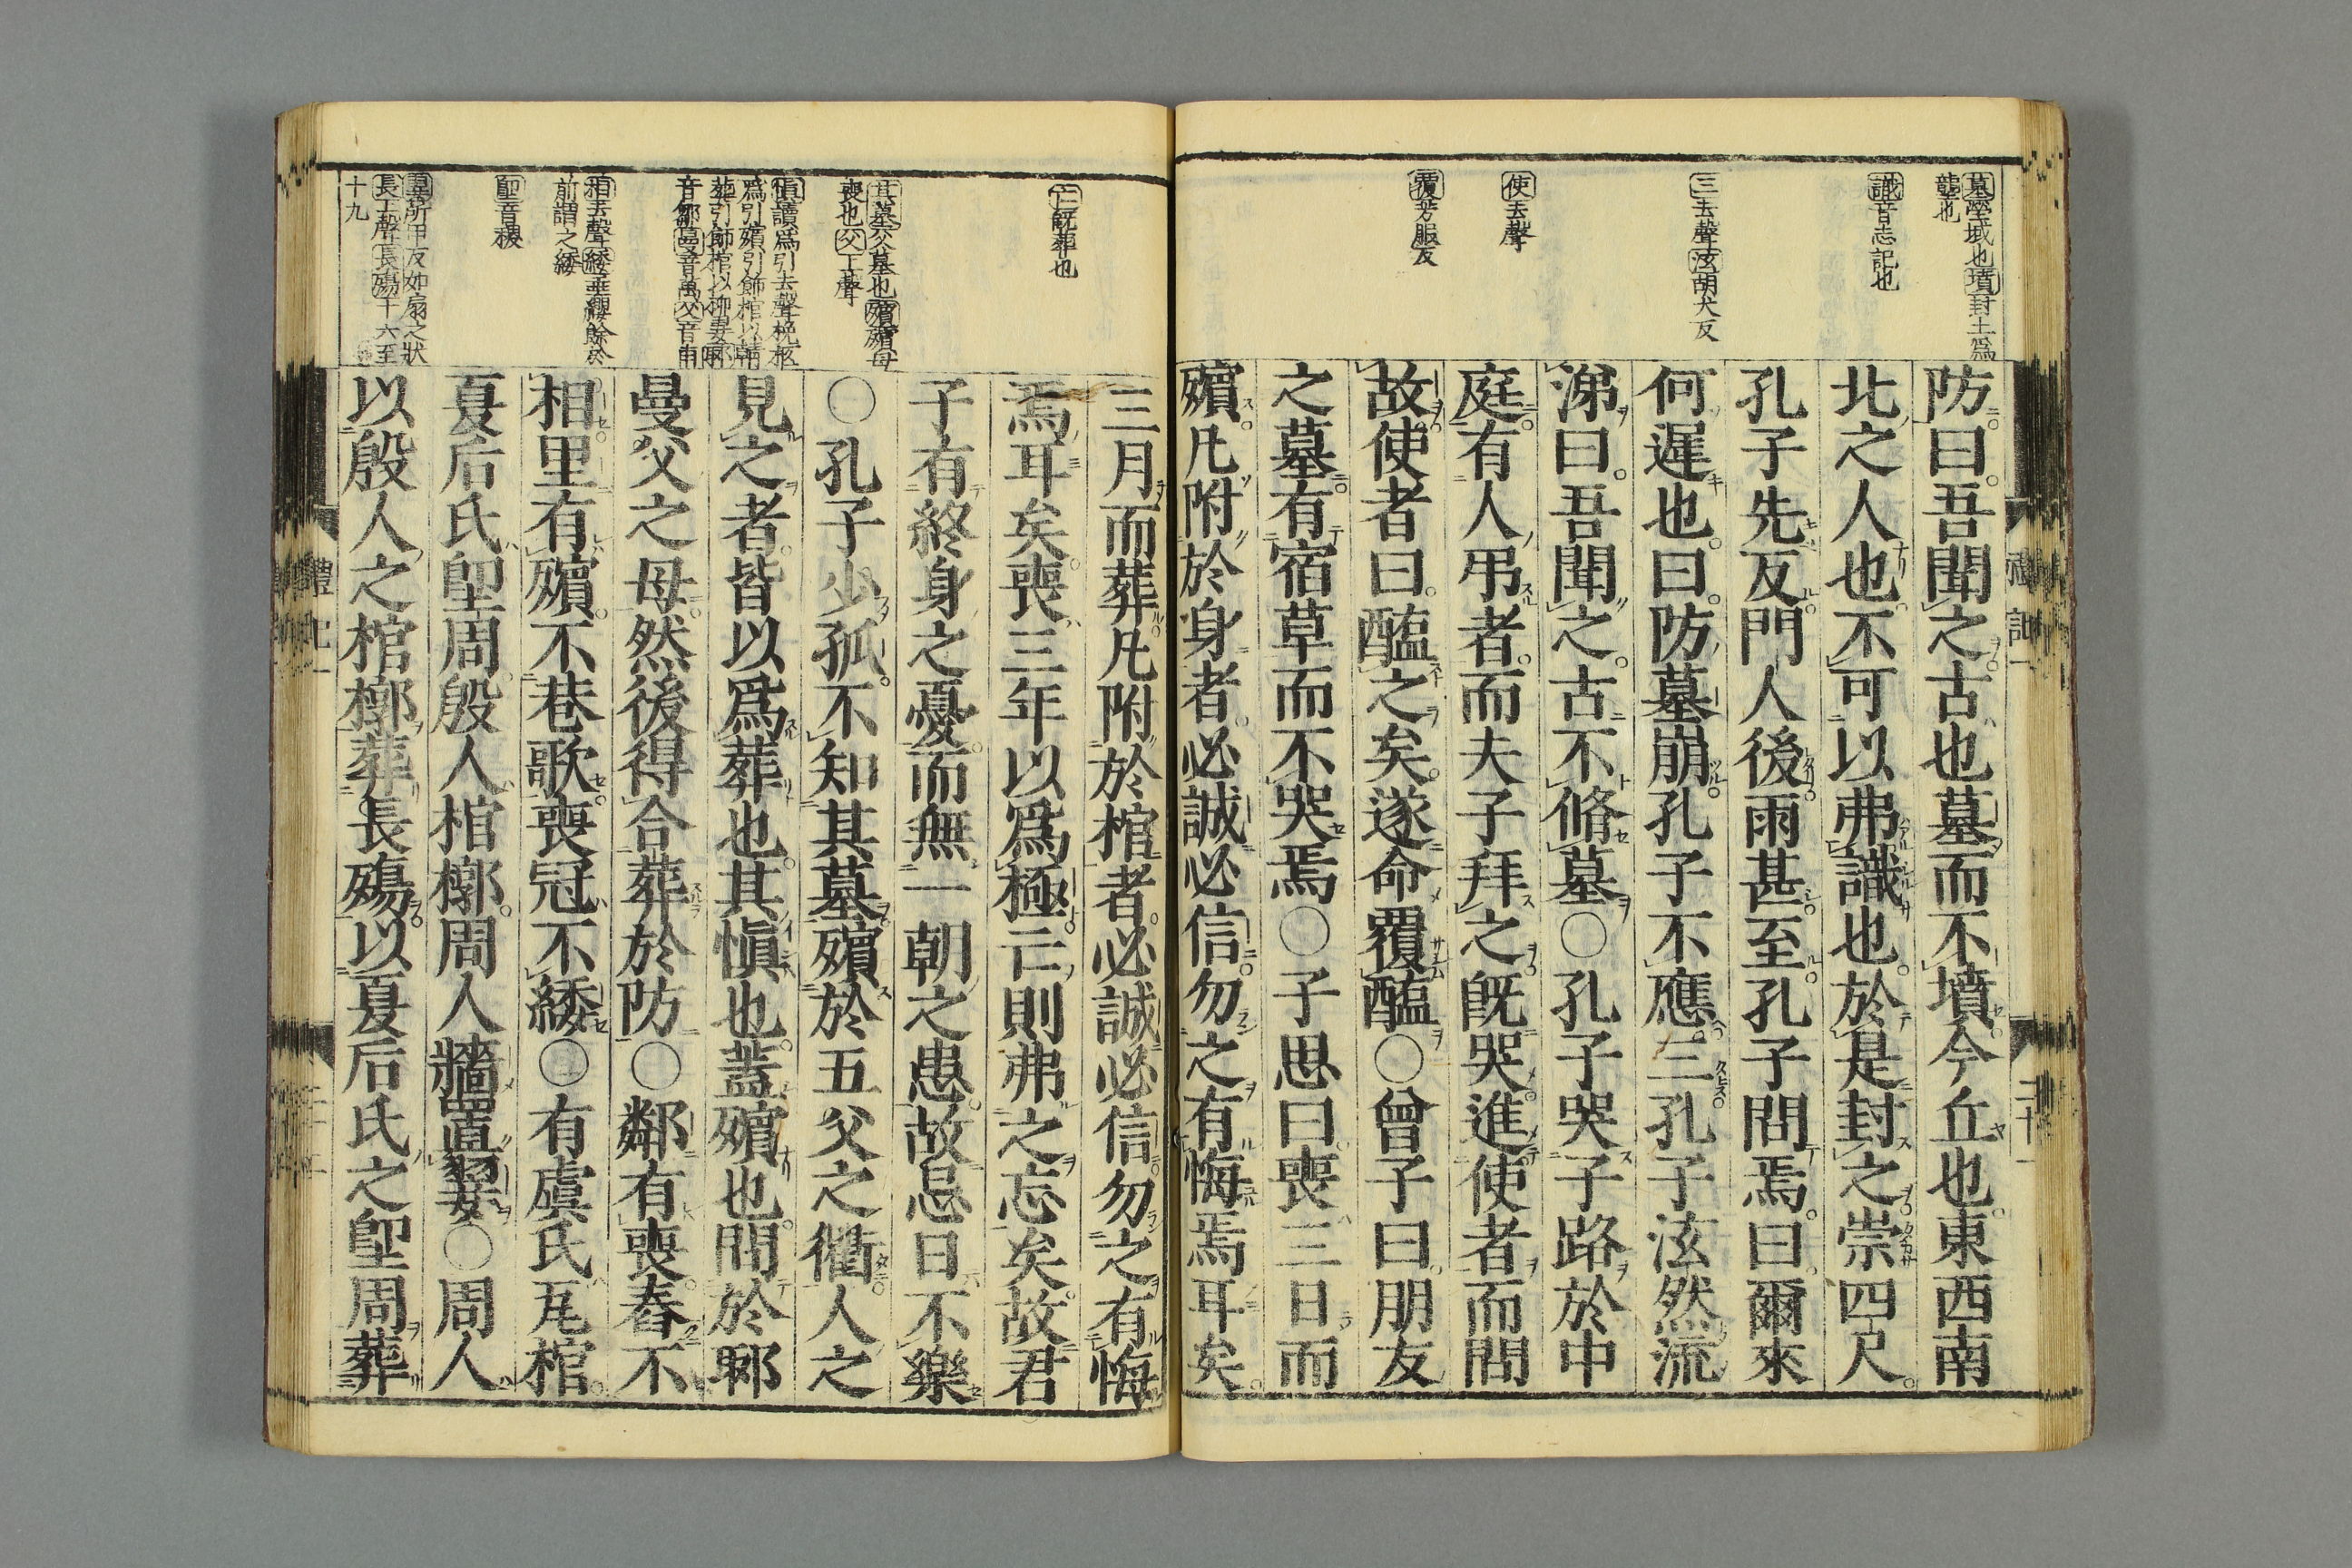 墓塋域也墳封土爲
壟也
識音志記也
三去聲泫胡犬反
使去聲
覆芳服反
防曰吾聞之古也墓而不墳今丘也東西南
北之人也不可以弗識也於是封之崇四尺
孔子先反門人後雨甚至孔子問焉曰爾來
何遲也曰防墓崩孔子不應三孔子泫然流
涕曰吾聞之古不脩墓○孔子哭子路於中
庭有人弔者而夫子拜之既哭進使者而問
故使者曰醢之矣遂命覆醢○曾子曰朋友
之墓有宿草而不哭焉○子思曰喪三日而
殯凡附於身者必誠必信勿之有悔焉耳矣
亡既葬也
其墓父墓也殯殯母
喪也父上聲
愼讀爲引去聲輓柩
爲引殯引飾棺以輤
葬引飾棺以柳翣郰
音鄒曼音萬父音甫
相去聲緌垂纓餘於
前謂之緌
堲音稷
翣所甲反如扇之狀
長上聲長殤十六至
十九
三月而葬凡附於棺者必誠必信勿之有悔
焉耳矣喪三年以爲極亡則弗之忘矣故君
子有終身之憂而無一朝之患故忌日不樂
○孔子少孤不知其墓殯於五父之衢人之
見之者皆以爲葬也其愼也蓋殯也問於郰
曼父之母然後得合葬於防○鄰有喪舂不
相里有殯不巷歌喪冠不緌○有虞氏瓦棺
夏后氏堲周殷人棺槨周人牆置翣○周人
以殷人之棺槨葬長殤以夏后氏之堲周葬